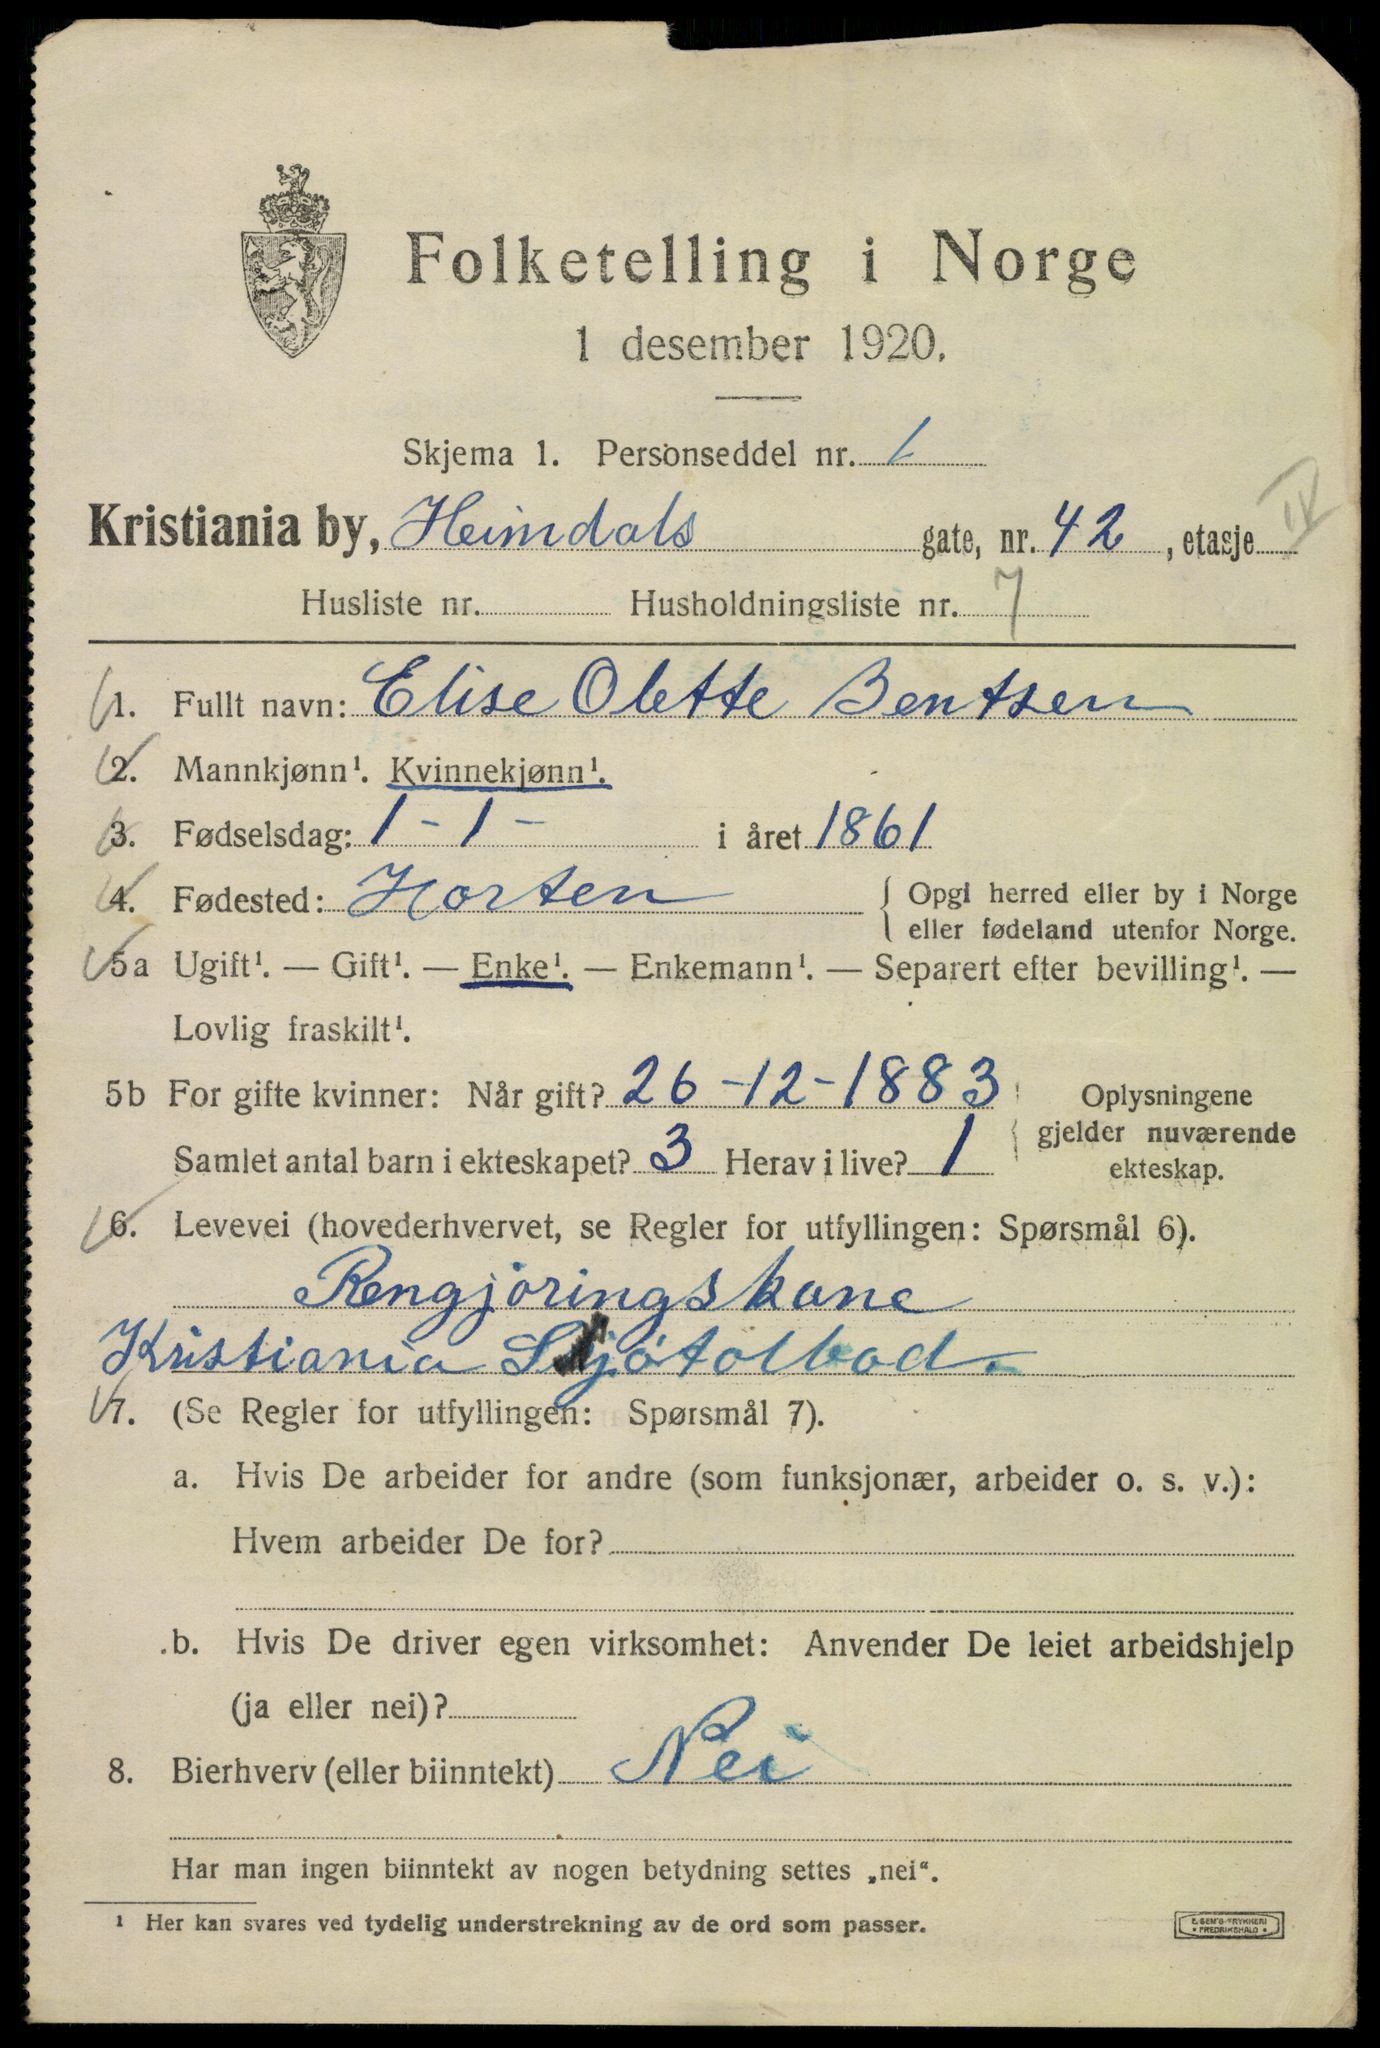 Folketelling i Norge
1 desember 1920.
Skjema 1. Personseddel nr. 1
Kristiania by, Heimdals gate, nr. 42, etasje IV
Husliste nr. Husholdningsliste nr. 7
1. Fullt navn: Elise Olette Bentsen
2. Mannkjønn¹. Kvinnekjønn¹.
3. Fødselsdag: 1 - 1 - i året 1861
4. Fødested: Horten { Opgi herred eller by i Norge
eller fødeland utenfor Norge.
5a Ugift¹. — Gift¹. — Enke¹. — Enkemann¹. — Separert efter bevilling¹. —
Lovlig fraskilt¹.
5b For gifte kvinner: Når gift? 26-12-1883 Oplysningene
Samlet antal barn i ekteskapet? 3 Herav i live? 1 gjelder nuværende
ekteskap.
6. Levevei (hovederhvervet, se Regler for utfyllingen: Spørsmål 6).
Rengjøringskone
Kristiania Sjøtolbod.
7. (Se Regler for utfyllingen: Spørsmål 7).
a. Hvis De arbeider for andre (som funksjonær, arbeider o. s. v.):
Hvem arbeider De for?
b. Hvis De driver egen virksomhet: Anvender De leiet arbeidshjelp
(ja eller nei)?
8. Bierhverv (eller biinntekt) Nei
Har man ingen biinntekt av nogen betydning settes „nei“.
¹ Her kan svares ved tydelig understrekning av de ord som passer.
FREDRIKSHALD